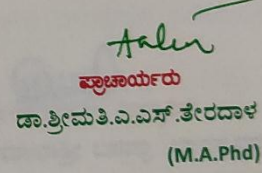 ಪ್ರಾಚಾರ್ಯರು
ಡಾ.ಶ್ರೀಮತಿ.ಎ.ಎಸ್.ತೇರದಾಳ
(M.A.Phd)